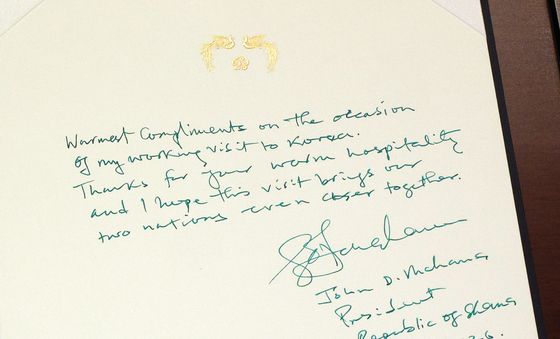 Warmest Compliments on the occasion
of my working visit to Korea.
Thanks for your warm hospitality
and I hope this visit brings our
two nations even closer together.
John D. Mahama
President
Republic of Ghana